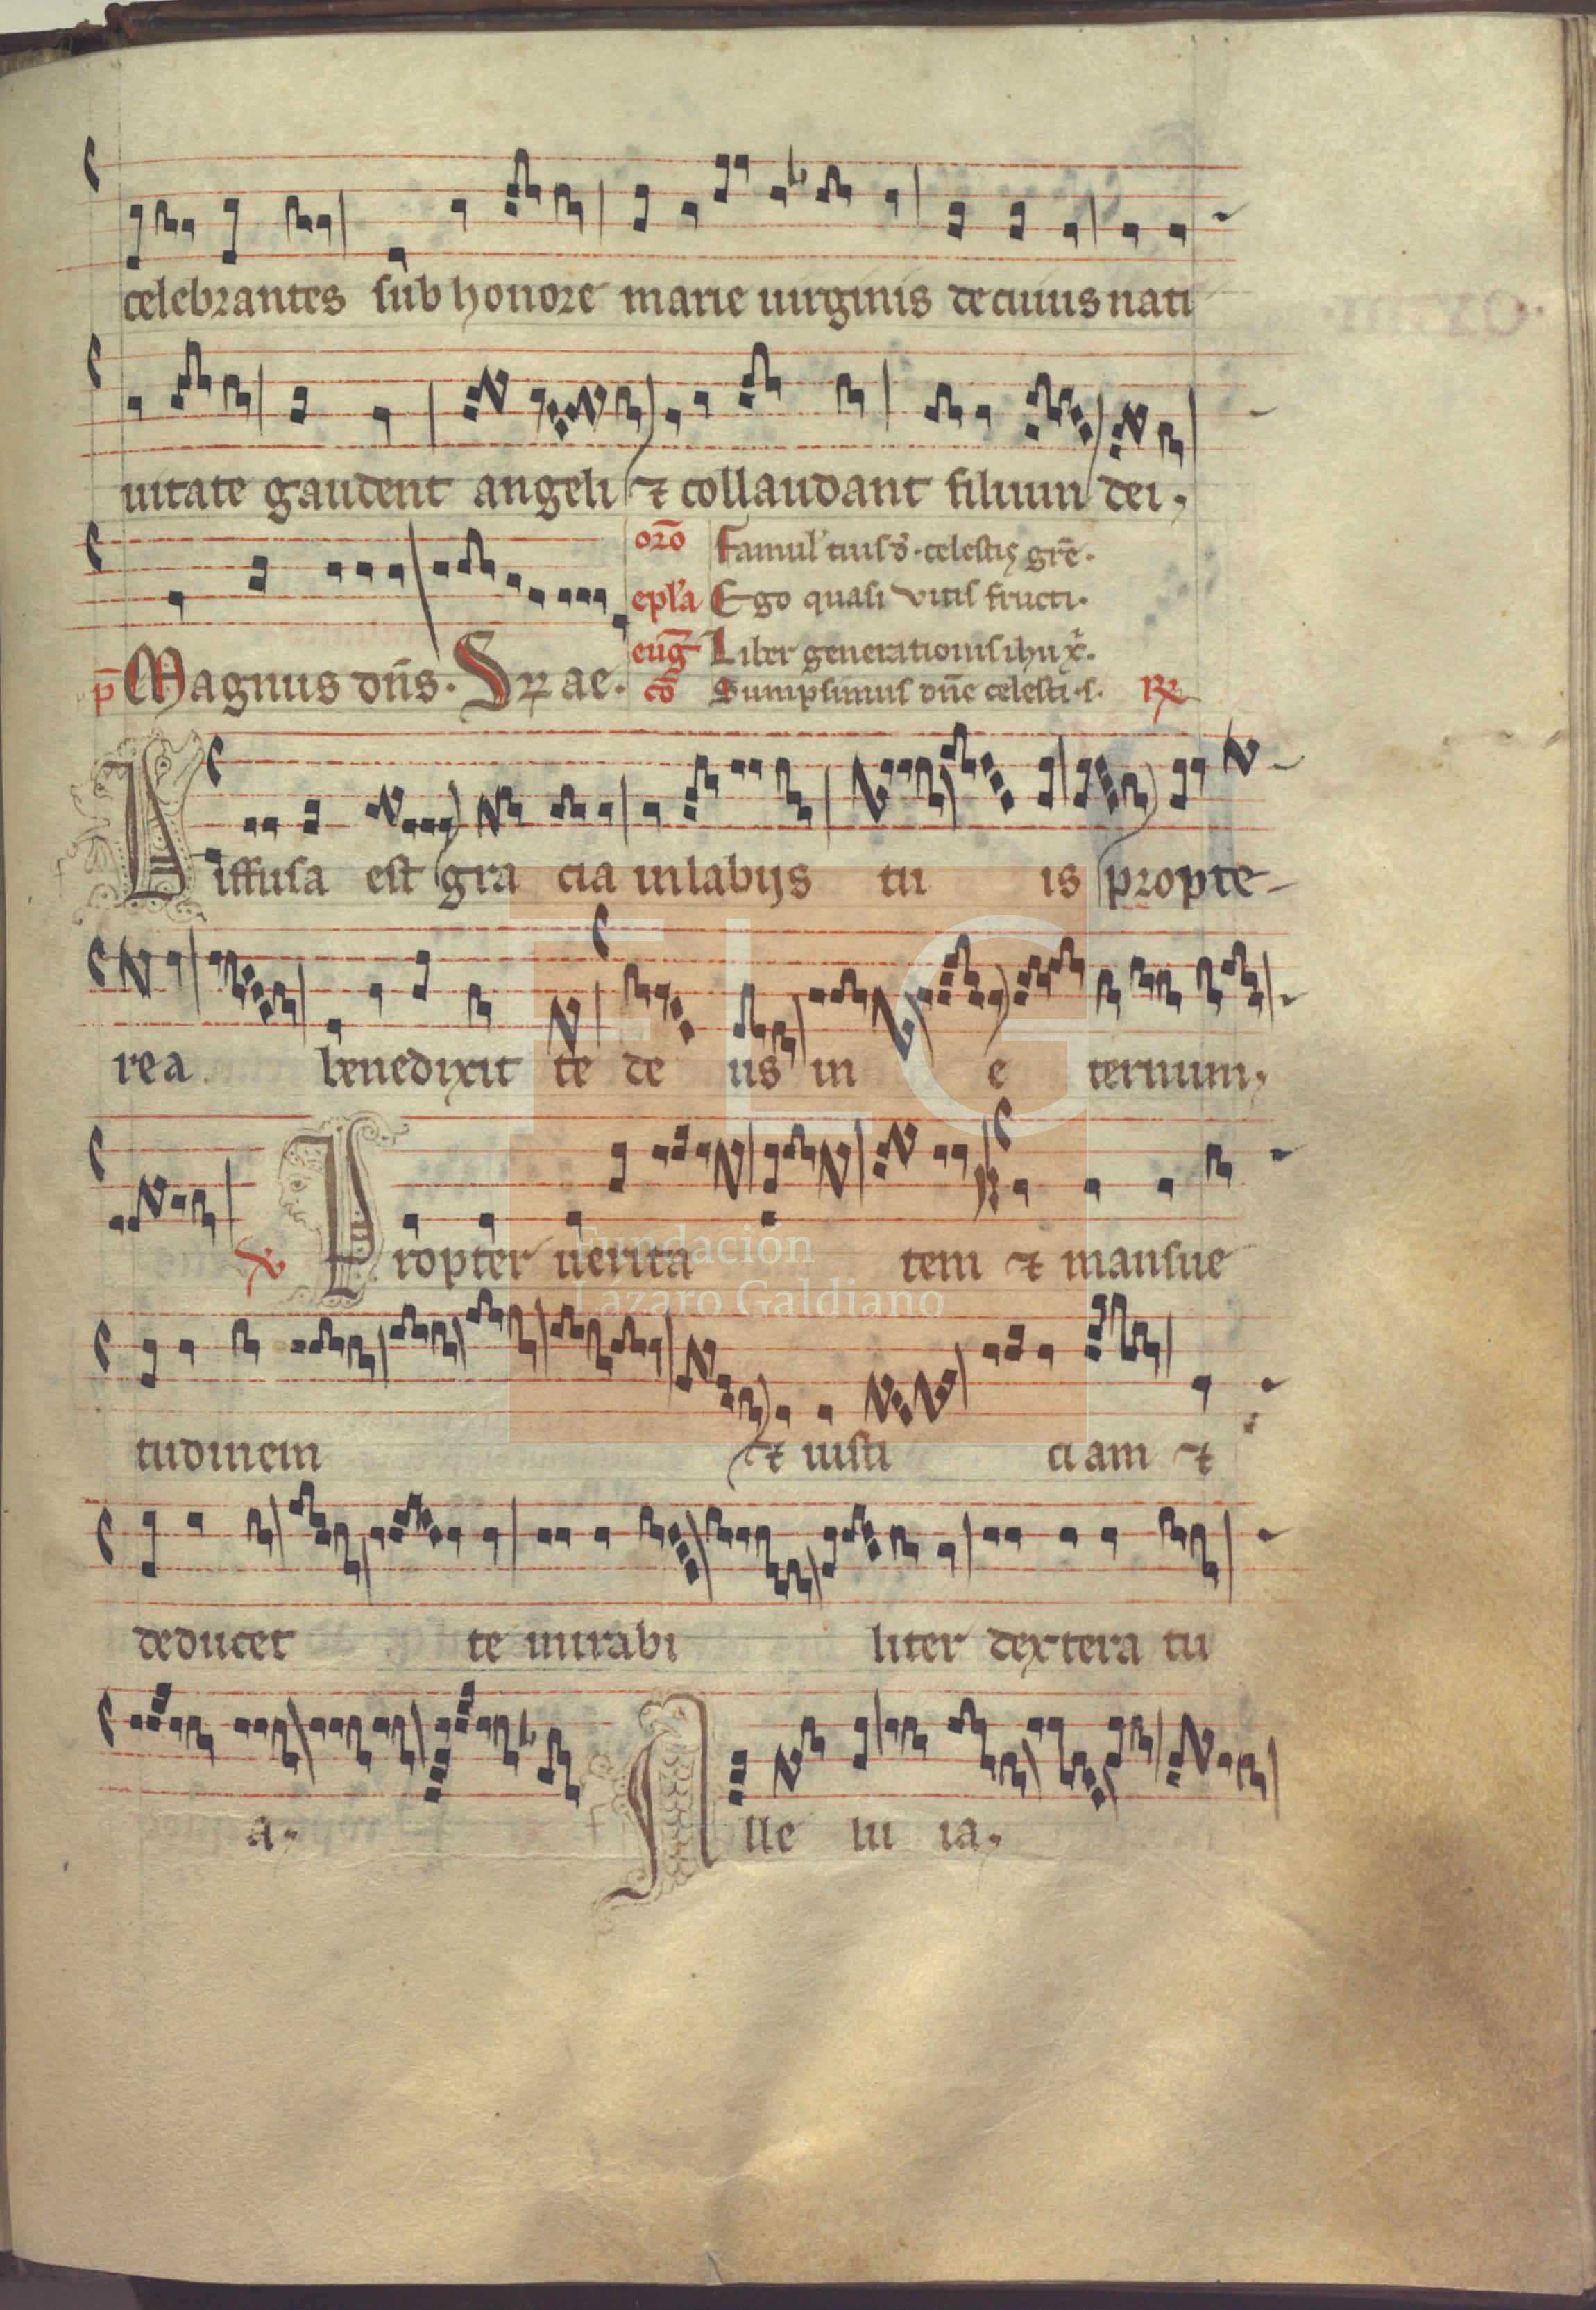 celebrantes sub honore marie uirginis de cuius nati
uitate gaudent angeli et collaudant filium dei,
oro Famul' tuis d. celestis gre.
epl'a Ego quasi vitis fructi.
eug Liber generationis ihu x.
p Magnus dns. S p ae.
co Sumpsimus dne celesti. s. R
Diffusa est gra cia in labijs tu is propte-
rea benedixit te de us in e ternum,
V Propter uerita tem et mansue
tudinem et iusti ciam et
deducet te mirabi liter dextera tu
a. Alle lu ia.
FLG
Fundación
Lázaro Galdiano